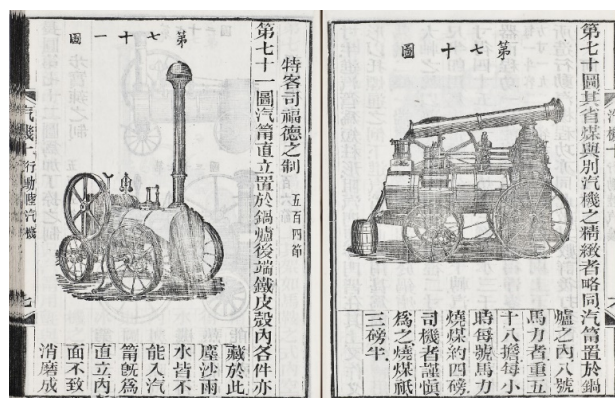 第七十圖其省煤與別汽機之精緻者略同汽筩置於鍋
第七十圖
爐之內八號
馬力者重五
十八擔每小
時每號馬力
燒煤約四磅
司機者謹慎
爲之燒煤祇
三磅半
特客司福德之制 五百四節
第七十一圖汽筩直立置於鍋爐後端鐵皮殼內各件亦
第七十一圖
藏於此
塵沙雨
水皆不
能入汽
筩旣爲
直立內
面不致
消磨成
汽機二 行動陸汽機 七